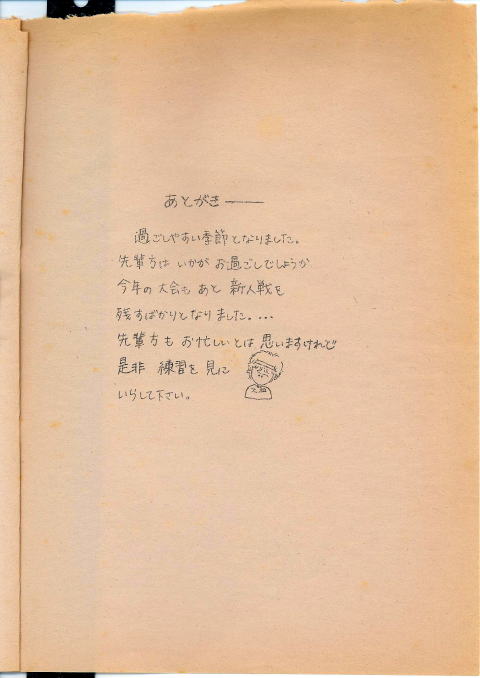 あとがき――
過ごしやすい季節となりました。
先輩方は いかが お過ごしでしょうか
今年の 大会も あと 新人戦を
残すばかりとなりました。...
先輩方も お忙しいとは 思いますけれど
是非 練習を 見に
いらして下さい。